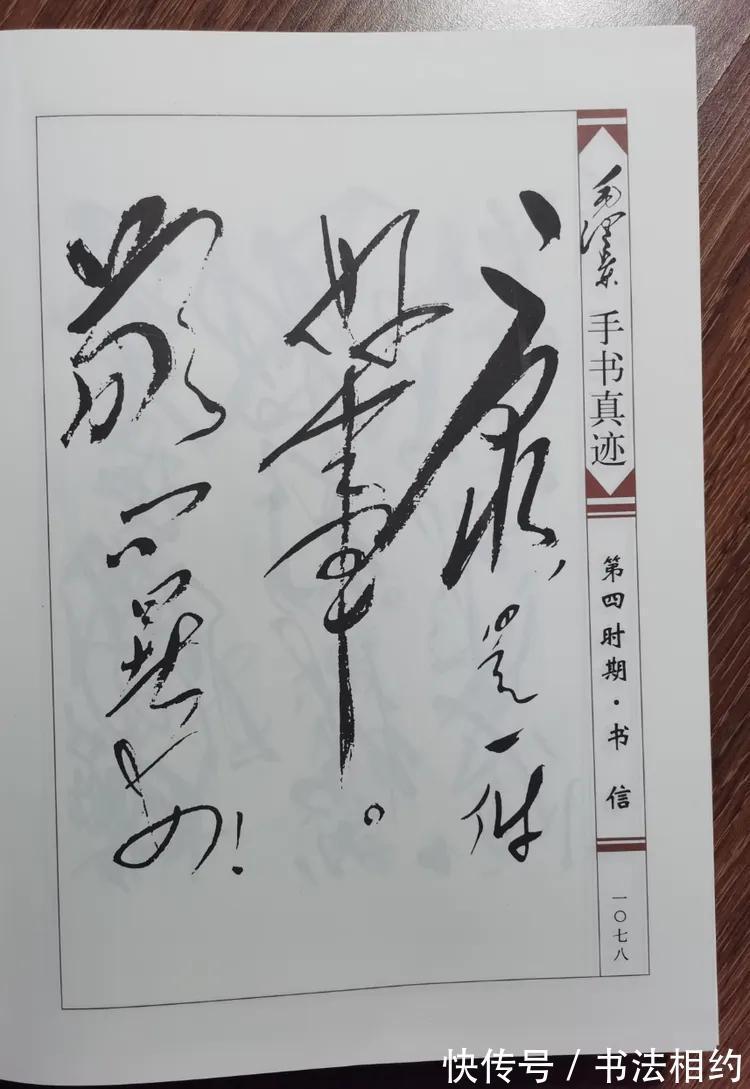 毛泽东 手书真迹
第四时期·书信
一〇七八
康,是一件
好事。
敬问安!
快传号 / 书法相约